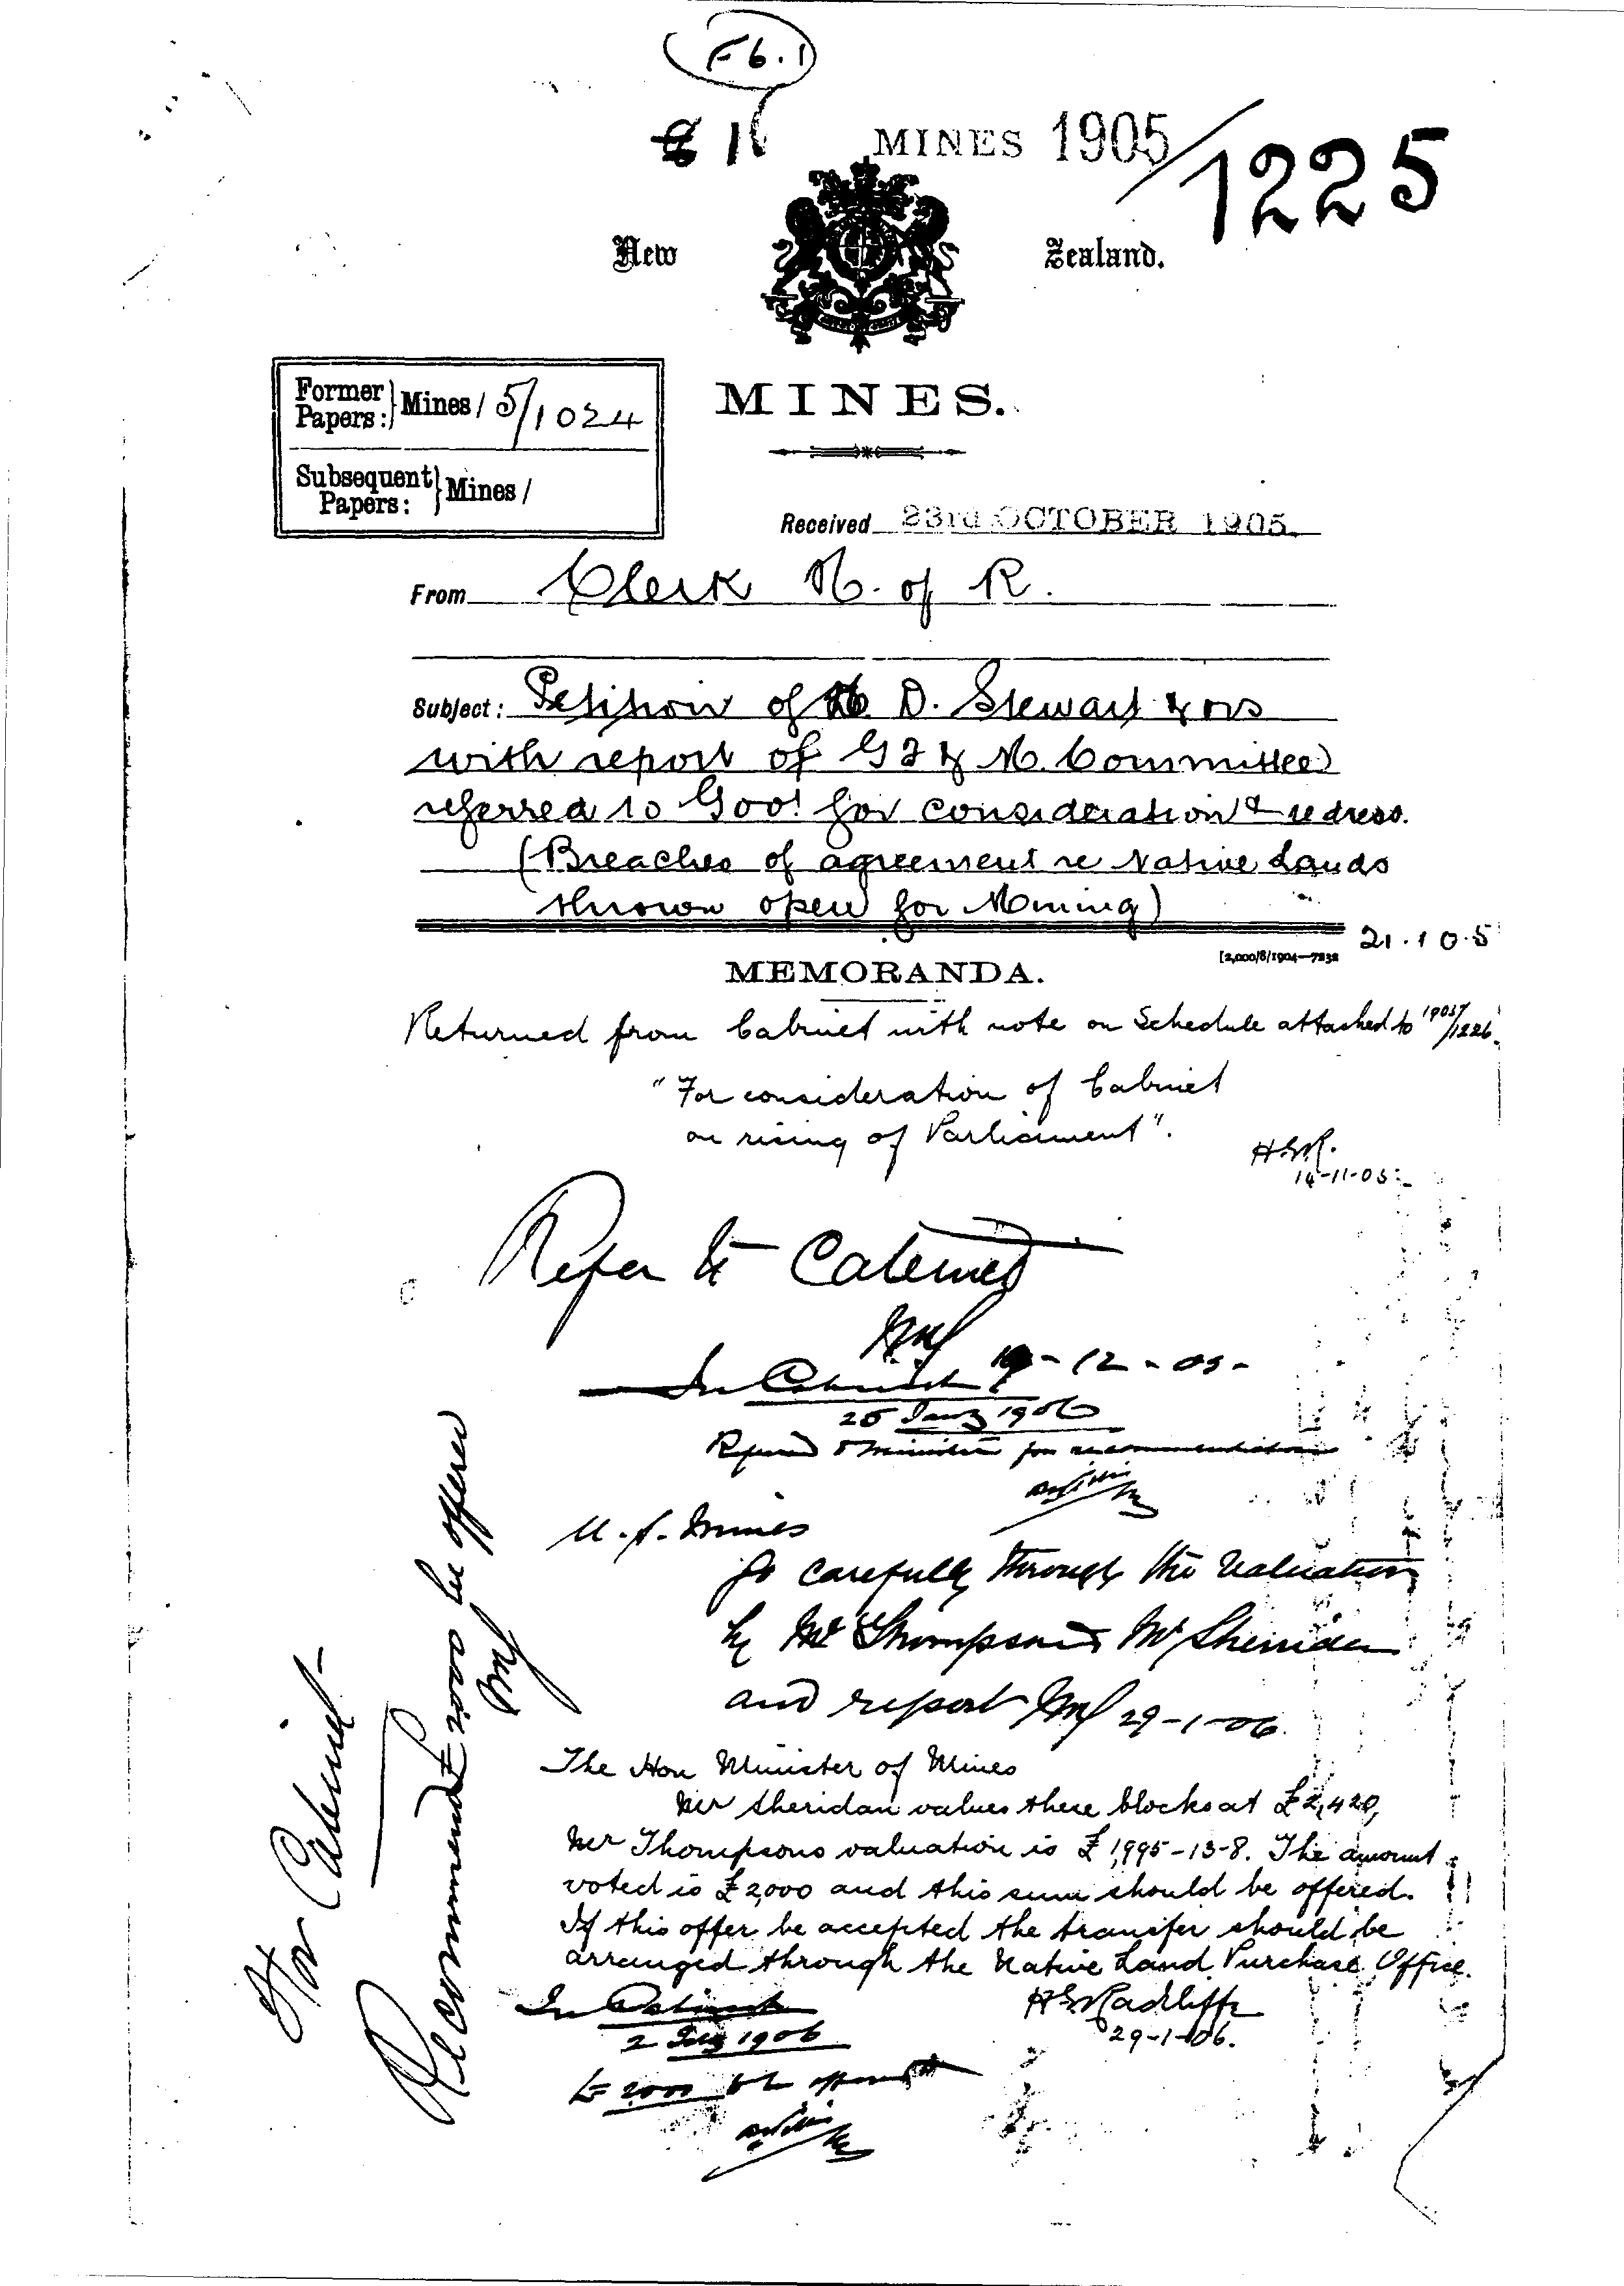 F6.1
MINES 1905/1225
New Zealand.
Former Papers: } Mines / 5/1024
Subsequent Papers: } Mines /
MINES.
Received 23rd OCTOBER 1905.
From Clerk H. of R.
Subject: Petition of D. Stewart & ors
with report of G F & M. Committee
referred to Govt for consideration & redress.
(Breaches of agreement re Native Lands
thrown open for Mining)
21.10.5
[2,000/8/1904—7232
MEMORANDA.
Returned from Cabinet with note on Schedule attached to 1905/1226.
"For consideration of Cabinet
on rising of Parliament".
H.E.R.
14-11-05
Refer to Cabinet
-12-05-
In Cabinet
25 Jany 1906
Referred to Minister for recommendation
U.S. Mines
Go carefully through the valuation
by Mr Thompson & Mr Sheridan
and report 29-1-06.
The Hon Minister of Mines
Mr Sheridan values these blocks at £2,420,
Mr Thompsons valuation is £1,995-13-8. The amount
voted is £2,000 and this sum should be offered.
If this offer be accepted the transfer should be
arranged through the Native Land Purchase Office.
H E Radcliffe
29-1-06.
For Cabinet-
Recommend £2,000 be offered
In Cabinet
2 Feby 1906
£2000 to be offered